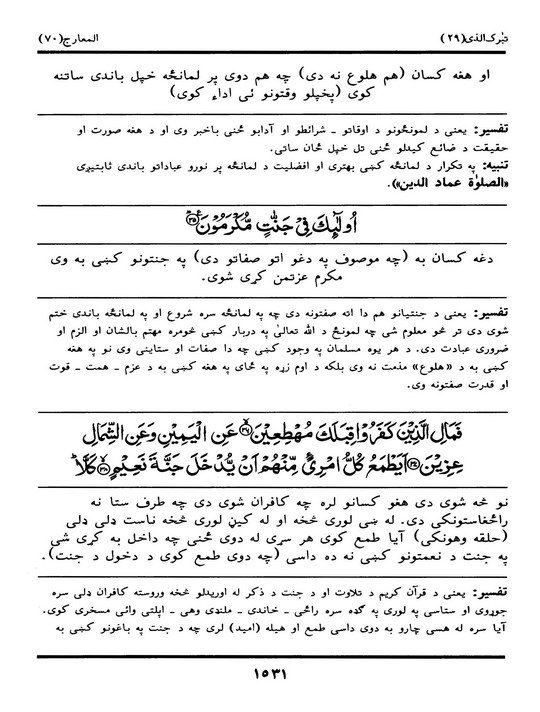 تبٰرك الذي(٢٩) المعارج(٧٠)
او هغه كسان (هم هلوع نه دي) چه هم دوى پر لمانځه خپل باندى ساتنه
كوى (پخپلو وقتونو ئى اداء كوى)
تفسير: يعنى د لمونځونو د اوقاتو ـ شرائطو او آدابو ځنى باخبر وى او د هغه صورت او
حقيقت د ضائع كيدلو ځنى تل خپل ځان ساتى.
تنبيه: په تكرار د لمانځه كښى بهترى او افضليت د لمانځه پر نورو عباداتو باندى ثابتيږى
«الصلوٰة عماد الدين»).
أُولَٰٓئِكَ فِىْ جَنّٰتٍ مُّكْرَمُوْنَ ۝٣٥
دغه كسان به (چه موصوف په دغو اتو صفاتو دى) په جنتونو كښى به وى
مكرم عزتمن كړى شوى.
تفسير: يعنى د جنتيانو هم دا اته صفتونه دى چه په لمانځه سره شروع او په لمانځه باندى ختم
شوى دى تر څو معلوم شى چه لمونځ د الله تعالىٰ په دربار كښى څومره مهتم بالشان او الزم او
ضرورى عبادت دى. د هر يوه مسلمان په وجود كښى چه دا صفات او ستاينى وى نو په هغه
كښى به د «هلوع» مذمت نه وى بلكه د اوم زړه په ځاى په هغه كښى به د عزم ـ همت ـ قوت
او قدرت صفتونه وى.
فَمَالِ الَّذِيْنَ كَفَرُوْا قِبَلَكَ مُهْطِعِيْنَ ۝٣٦ عَنِ الْيَمِيْنِ وَعَنِ الشِّمَالِ
عِزِيْنَ ۝٣٧ اَيَطْمَعُ كُلُّ امْرِئٍ مِّنْهُمْ اَنْ يُّدْخَلَ جَنَّةَ نَعِيْمٍ ۝٣٨ كَلَّا
نو څه شوى دى هغو كسانو لره چه كافران شوى دى چه طرف ستا نه
راځغاستونكى دى. له ښى لورى څخه او له كيڼ لورى څخه ناست ډلى ډلى
(حلقه وهونكى) آيا طمع كوى هر سړى له دوى ځنى چه داخل به كړى شى
په جنت د نعمتونو كښى نه ده داسى (چه دوى طمع كوى د دخول د جنت).
تفسير: يعنى د قرآن كريم د تلاوت او د جنت د ذكر له اوريدلو څخه وروسته كافران ډلى سره
جوړوى او ستاسى په لورى په گډه سره راځى ـ خاندى ـ ملنډى وهى ـ اپلتى وائى مسخرى كوى.
آيا سره له هسى چارو به دوى داسى طمع او هيله (اميد) لرى چه د جنت په باغونو كښى به
١٥٣١